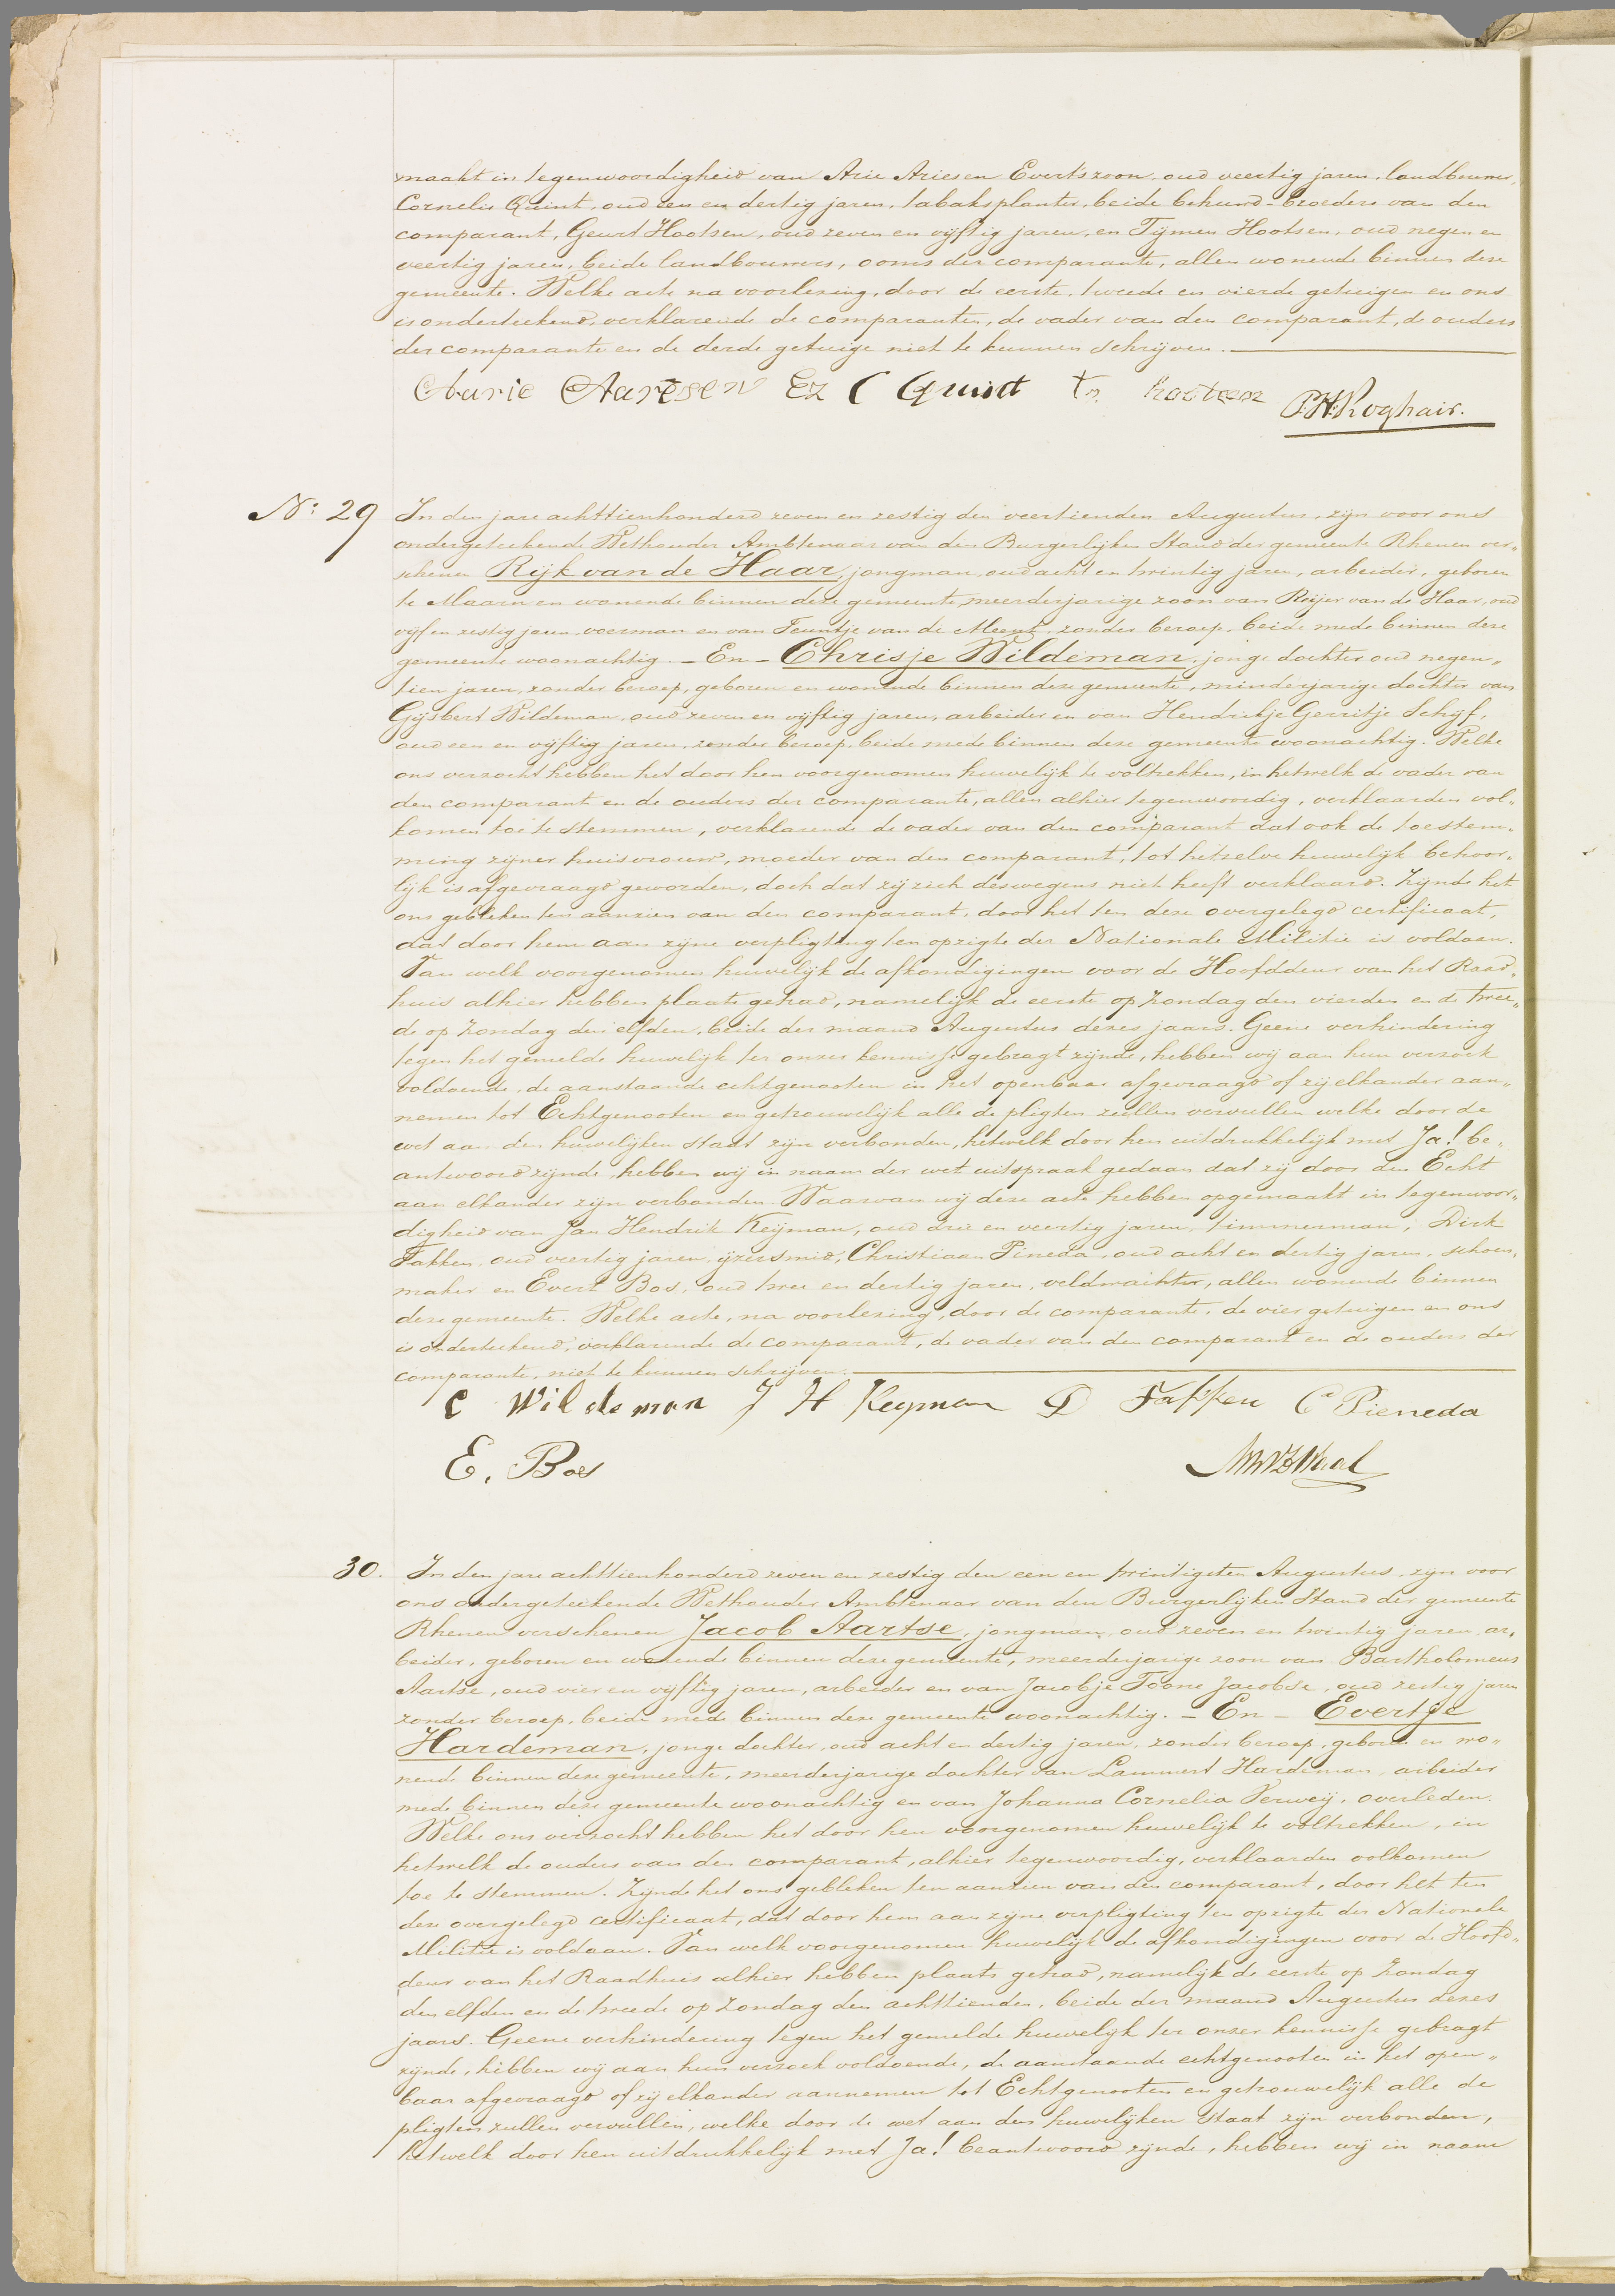 maakt in tegenwoordigheid van Arie Ariesen Evertszoon, oud veertig jaren, landbouwer,
Cornelis Quint, oud een en dertig jaren, tabaksplanter, beide behuwd-broeders van den
comparant, Geurt Hootsen, oud zeven en vijftig jaren, en Tijmen Hootsen, oud negen en
veertig jaren, beide landbouwers, ooms der comparante, allen wonende binnen deze
gemeente. Welke acte na voorlezing, door de eerste, tweede en vierde getuigen en ons
is onderteekend, verklarende de comparanten, de vader van den comparant, de ouders
der comparante en de derde getuige niet te kunnen schrijven.
Aarie Aaresen Ez C Quint Tn hootsen P.H. Roghair.
No: 29 In den jare achttienhonderd zeven en zestig den veertienden Augustus, zijn voor ons
ondergeteekende Wethouder Ambtenaar van den Burgerlijken Stand der gemeente Rhenen ver„
schenen Rijk van de Haar, jongman, oud acht en twintig jaren, arbeider, geboren
te Maarn en wonende binnen deze gemeente, meerderjarige zoon van Reijer van de Haar, oud
vijf en zestig jaren voerman en van Teuntje van de Meent, zonder beroep, beide mede binnen deze
gemeente woonachtig. – En – Chrisje Wildeman, jonge dochter oud negen„
tien jaren, zonder beroep, geboren en wonende binnen deze gemeente, minderjarige dochter van
Gijsbert Wildeman, oud zeven en vijftig jaren, arbeider en van Hendrikje Gerritje Schijf,
oud een en vijftig jaren, zonder beroep, beide mede binnen deze gemeente woonachtig. Welke
ons verzocht hebben het door hen voorgenomen huwelijk te voltrekken, in hetwelk de vader van
den comparant en de ouders der comparante, allen alhier tegenwoordig, verklaarden vol„
komen toe te stemmen, verklarende de vader van den comparant dat ook de toestem„
ming zijner huisvrouw, moeder van den comparant, tot hetzelve huwelijk behoor„
lijk is afgevraagd geworden, doch dat zij zich deswegens niet heeft verklaard. Zijnde het
ons gebleken ten aanzien van den comparant, door het ten deze overgelegd certificaat,
dat door hem aan zijne verpligting ten opzigte der Nationale Militie is voldaan.
Van welk voorgenomen huwelijk de afkondigingen voor de Hoofddeur van het Raad„
huis alhier hebben plaats gehad, namelijk de eerste op Zondag den vierden en de twee„
de op Zondag den elfden, beide der maand Augustus dezes jaars. Geene verhindering
tegen het gemelde huwelijk ter onzer kennisse gebragt zijnde, hebben wij aan hun verzoek
voldoende, de aanstaande echtgenooten in het openbaar afgevraagd of zij elkander aan„
nemen tot Echtgenooten en getrouwelijk alle de pligten zullen vervullen welke door de
wet aan den huwelijken staat zijn verbonden, hetwelk door hen uitdrukkelijk met Ja! be„
antwoord zijnde, hebben wij in naam der wet uitspraak gedaan dat zij door den Echt
aan elkander zijn verbonden. Waarvan wij deze acte hebben opgemaakt in tegenwoor„
digheid van Jan Hendrik Keijman, oud drie en veertig jaren, timmerman, Dirk
Fakken, oud veertig jaren, ijzersmid, Christiaan Pineda, oud acht en dertig jaren, schoen„
maker en Evert Bos, oud twee en dertig jaren, veldwachter, allen wonende binnen
deze gemeente. Welke acte, na voorlezing, door de comparante, de vier getuigen en ons
is onderteekend, verklarende de comparant, de vader van den comparant en de ouders der
comparante, niet te kunnen schrijven.
C Wildeman J H Keyman D Fakken C Pieneda
E. Bos
30. In den jare achttienhonderd zeven en zestig den een en twintigsten Augustus, zijn voor
ons ondergeteekende Wethouder Ambtenaar van den Burgerlijken Stand der gemeente
Rhenen verschenen Jacob Aartse, jongman, oud zeven en twintig jaren, ar„
beider, geboren en wonende binnen deze gemeente, meerderjarige zoon van Bartholomeus
Aartse, oud vier en vijftig jaren, arbeider en van Jacobje Toone Jacobse, oud zestig jaren
zonder beroep, beide mede binnen deze gemeente woonachtig. – En – Evertje
Hardeman, jonge dochter, oud acht en dertig jaren, zonder beroep, geboren en wo„
nende binnen deze gemeente, meerderjarige dochter van Lammert Hardeman, arbeider
mede binnen deze gemeente woonachtig en van Johanna Cornelia Verweij, overleden.
Welke ons verzocht hebben het door hen voorgenomen huwelijk te voltrekken, in
hetwelk de ouders van den comparant, alhier tegenwoordig, verklaarden volkomen
toe te stemmen. Zijnde het ons gebleken ten aanzien van den comparant, door het ten
deze overgelegd certificaat, dat door hem aan zijne verpligting ten opzigte der Nationale
Militie is voldaan. Van welk voorgenomen huwelijk de afkondigingen voor de Hoofd„
deur van het Raadhuis alhier hebben plaats gehad, namelijk de eerste op Zondag
den elfden en de tweede op Zondag den achttienden, beide der maand Augustus dezes
jaars. Geene verhindering tegen het gemelde huwelijk ter onzer kennisse gebragt
zijnde, hebben wij aan hun verzoek voldoende, de aanstaande echtgenooten in het open„
baar afgevraagd of zij elkander aannemen tot Echtgenooten en getrouwelijk alle de
pligten zullen vervullen, welke door de wet aan den huwelijken staat zijn verbonden,
hetwelk door hen uitdrukkelijk met Ja! beantwoord zijnde, hebben wij in naam